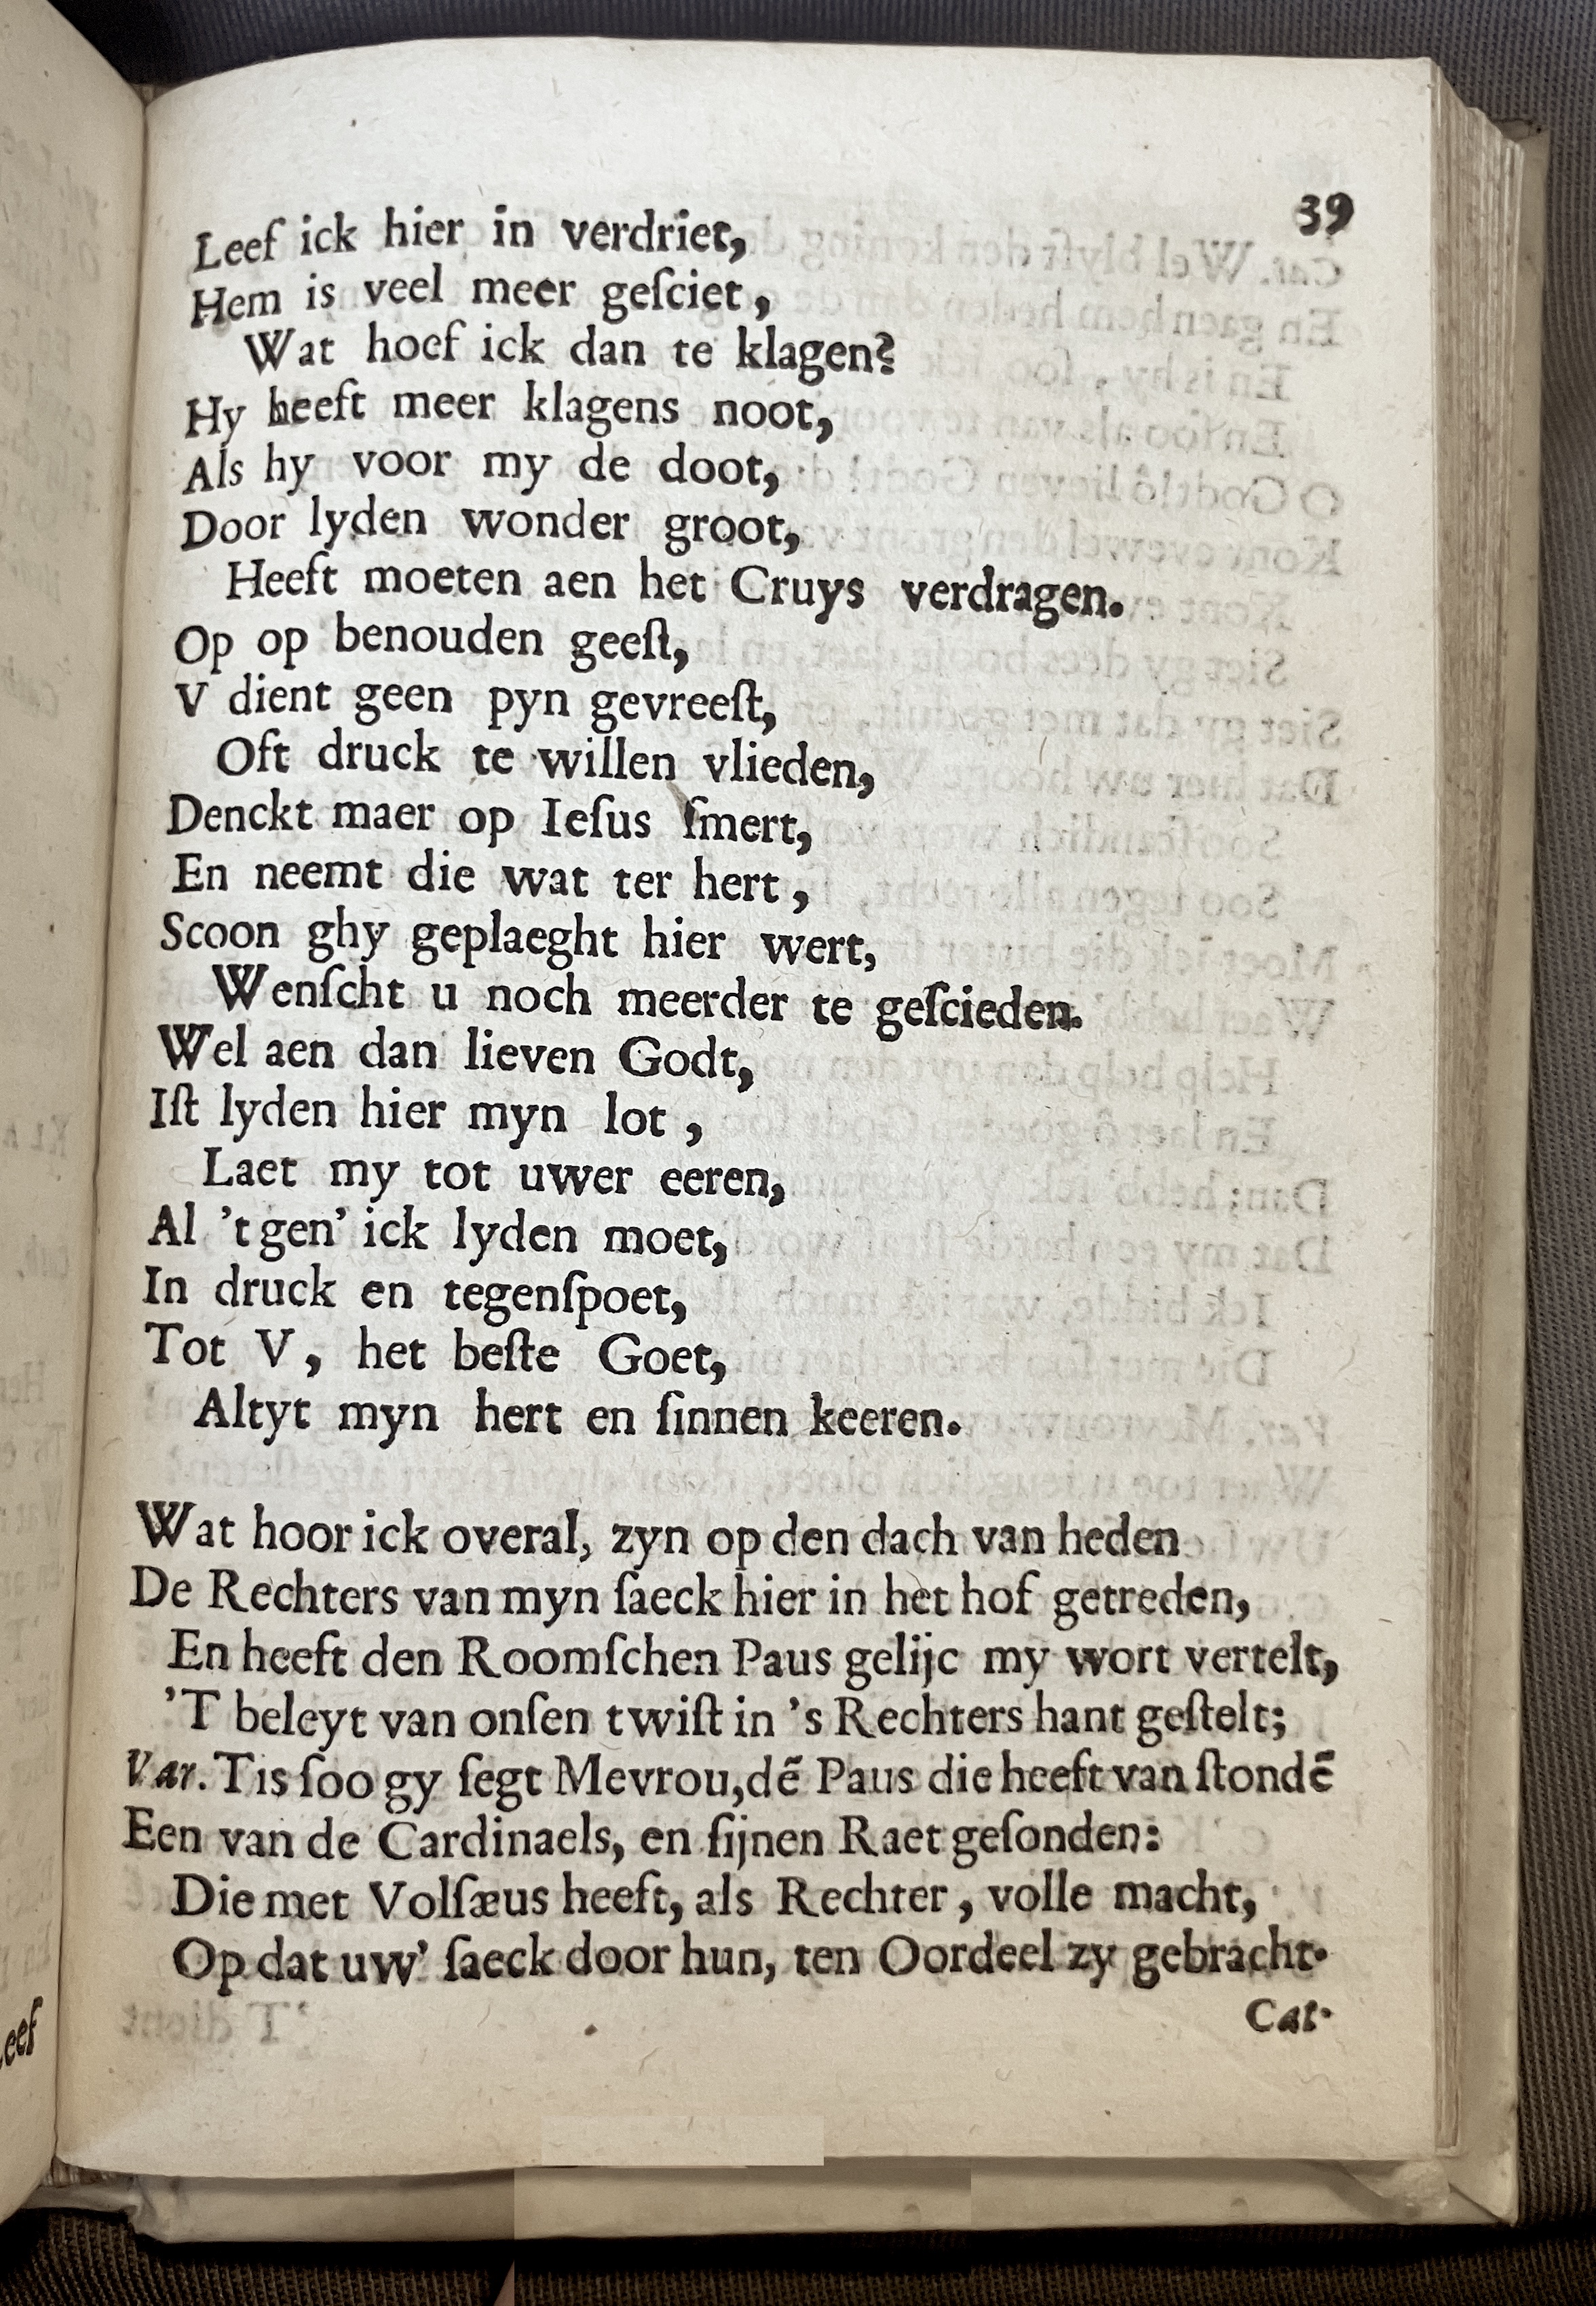 39
Leef ick hier in verdriet,
Hem is veel meer geſciet,
Wat hoef ick dan te klagen?
Hy heeft meer klagens noot,
Als hy voor my de doot,
Door lyden wonder groot,
Heeft moeten aen het Cruys verdragen.
Op op benouden geeſt,
V dient geen pyn gevreeſt,
Oft druck te willen vlieden,
Denckt maer op Ieſus ſmert,
En neemt die wat ter hert,
Scoon ghy geplaeght hier wert,
Wenſcht u noch meerder te geſcieden.
Wel aen dan lieven Godt,
Iſt lyden hier myn lot,
Laet my tot uwer eeren,
Al 't gen' ick lyden moet,
In druck en tegenſpoet,
Tot V, het beſte Goet,
Altyt myn hert en ſinnen keeren.
Wat hoor ick overal, zyn op den dach van heden
De Rechters van myn ſaeck hier in het hof getreden,
En heeft den Roomſchen Paus gelijc my wort vertelt,
'T beleyt van onſen twiſt in 's Rechters hant geſtelt;
Var. Tis ſoo gy ſegt Mevrou, dē Paus die heeft van ſtondē
Een van de Cardinaels, en ſijnen Raet geſonden:
Die met Volſæus heeft, als Rechter, volle macht,
Op dat uw' ſaeck door hun, ten Oordeel zy gebracht.
Cat.